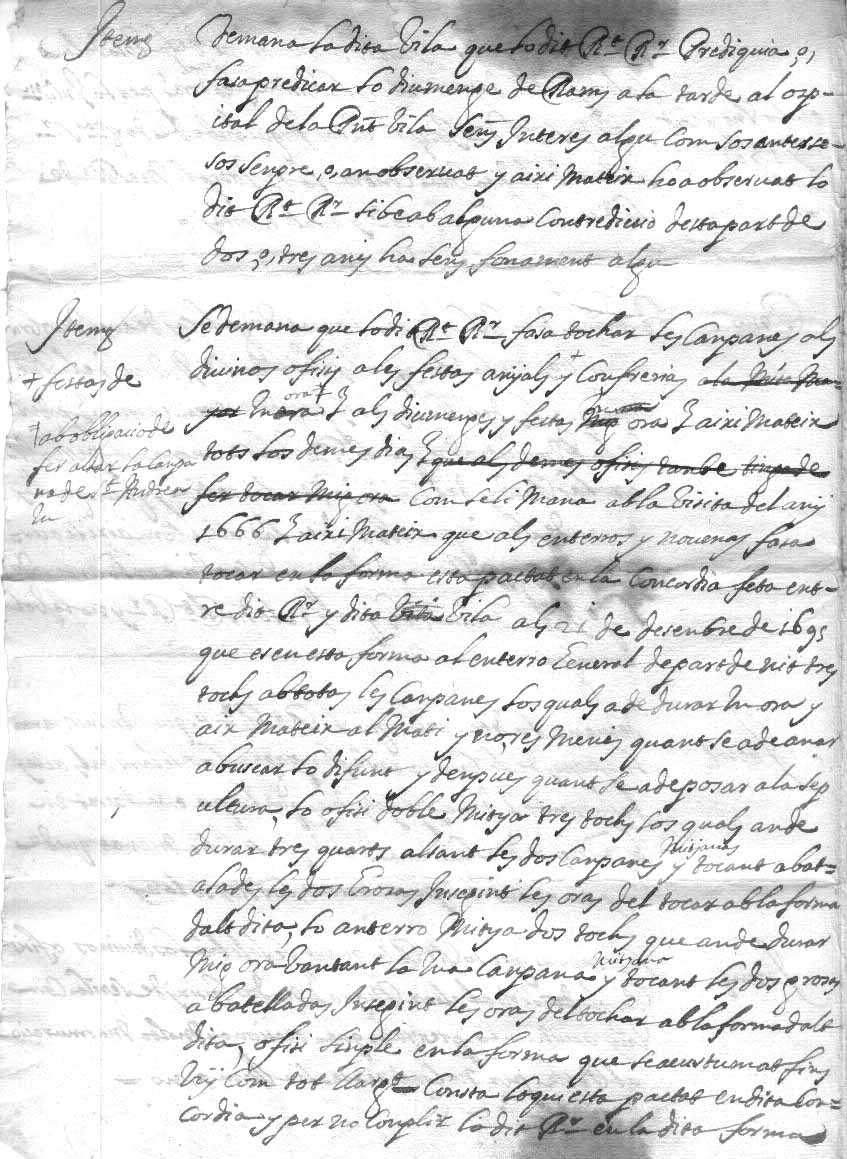 Item demana la dita vila que lo dit Rt Rr Prediquia, o,
fasa predicar lo diumenge de Rams a la tarde al osp-
ital de la Pnt vila sens Interes algu com sos anterse-
sos senpre, o, an observat y aixi Mateix ho a observat lo
dit Rt Rr si be ab alguna Contredicio desta part de
dos, o, tres anys ha sens fonament algu
Item Se demana que lo dit Rt Rr fasa tochar les Canpanes als
divinos ofisis a les festas anyals + y Confreries a la
+ festas de
ora + als diumenges y festas ora y aixi Mateix
+ ab obligacio de
fer alsar la canpa
na de St Andreu
tots los demes dias que als demes ofisis tanbe tinga de
fer tocar Mig ora Com se li Mana ab la visita del any
1666 y aixi Mateix que als enterros y novenas fasa
tocar en la forma esta pactat en la Concordia feta ent-
re dit Rr y dita vila vila als 21 de desenbre de 1695
que es en esta forma al enterro General de part de nit tres
tochs ab totas les Canpanes los quals a de durar un ora y
aix Mateix al Mati y no res Menis quant se a de anar
a buscar lo difunt y denpues quant se a de posar a la sep
ultura, lo ofisi doble Mitya tres tochs los quals an de
durar tres quarts alsant les dos Canpanes Mitjanes y tocant a bat-
alades les dos Grosas Inseguint les oras del tocar ab la forma
dalt dita, lo anterro Mitya dos tochs que an de durar
Mig ora vantant la una Canpana Mitjana y tocant les dos grosas
a batelladas Inseguint les oras del tochar ab la forma dalt
dita, ofisi sinple en la forma que se acustumat fins
vuy Com tot llargt Consta lo qui esta pactat en dita Con-
cordia y per no Conplir lo dit Rr en la dita forma